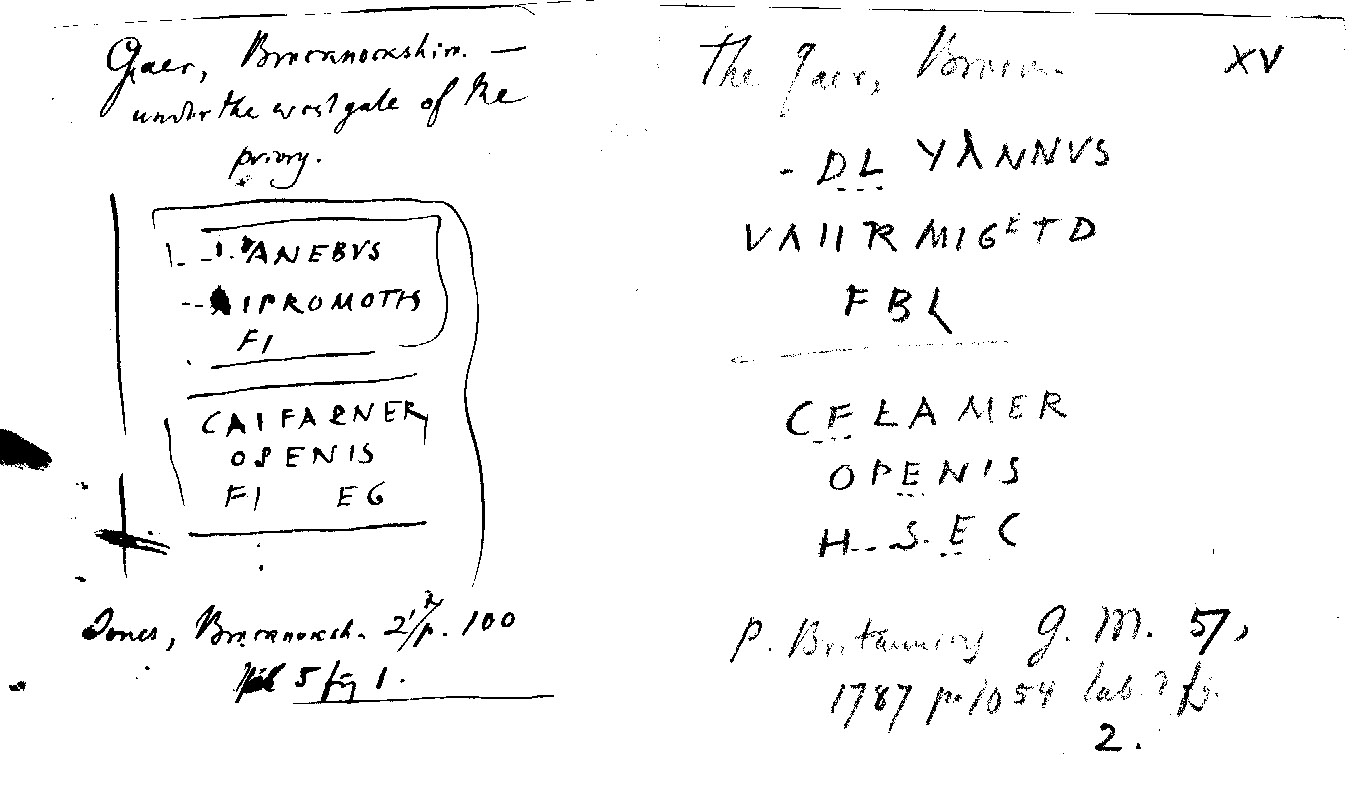 Gaer, Brecknockshire. —
under the west gate of the
priory.
ANEBVS
IPROMOTIS
FI
CAIFARNER
OPENIS
FI EG
Jones, Brecknocksh. 2/2 p. 100
5 fig 1.
The Gaer, Brecon. XV
- DL YANNVS
VAIIRMIGETD
FBL
CFLAMER
OPENIS
H S E C
P. Britannicus G. M. 57,
1787 p. 1054 tab. 2 fig.
2.